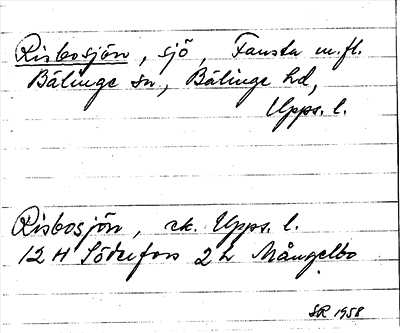 Risbosjön, sjö, Fansta m.fl.
Bälinge sn, Bälinge hd,
Upps. l.
Risbosjön, rk. Upps. l.
12 H Söderfors 2 h Mångelbo
SR 1958